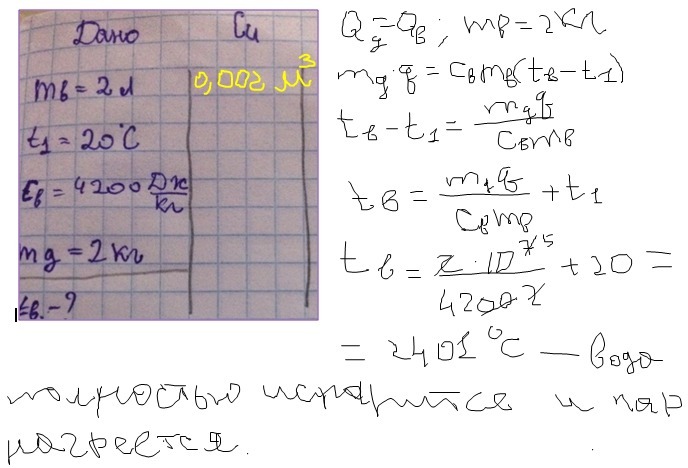 Дано Си
mв = 2 л 0,002 м³
t₁ = 20°C
cв = 4200 Дж/кг
mд = 2 кг
tв. - ?
Qд = Qв ; mв = 2 кг
mд · q = cв mв (tв − t₁)
tв − t₁ = mд q / cв mв
tв = mд q / cв mв + t₁
tв = 2 · 10⁷ ⁵ / 4200 · 2 + 20 =
= 2401 °C — вода
полностью испарится и пар
нагреется.